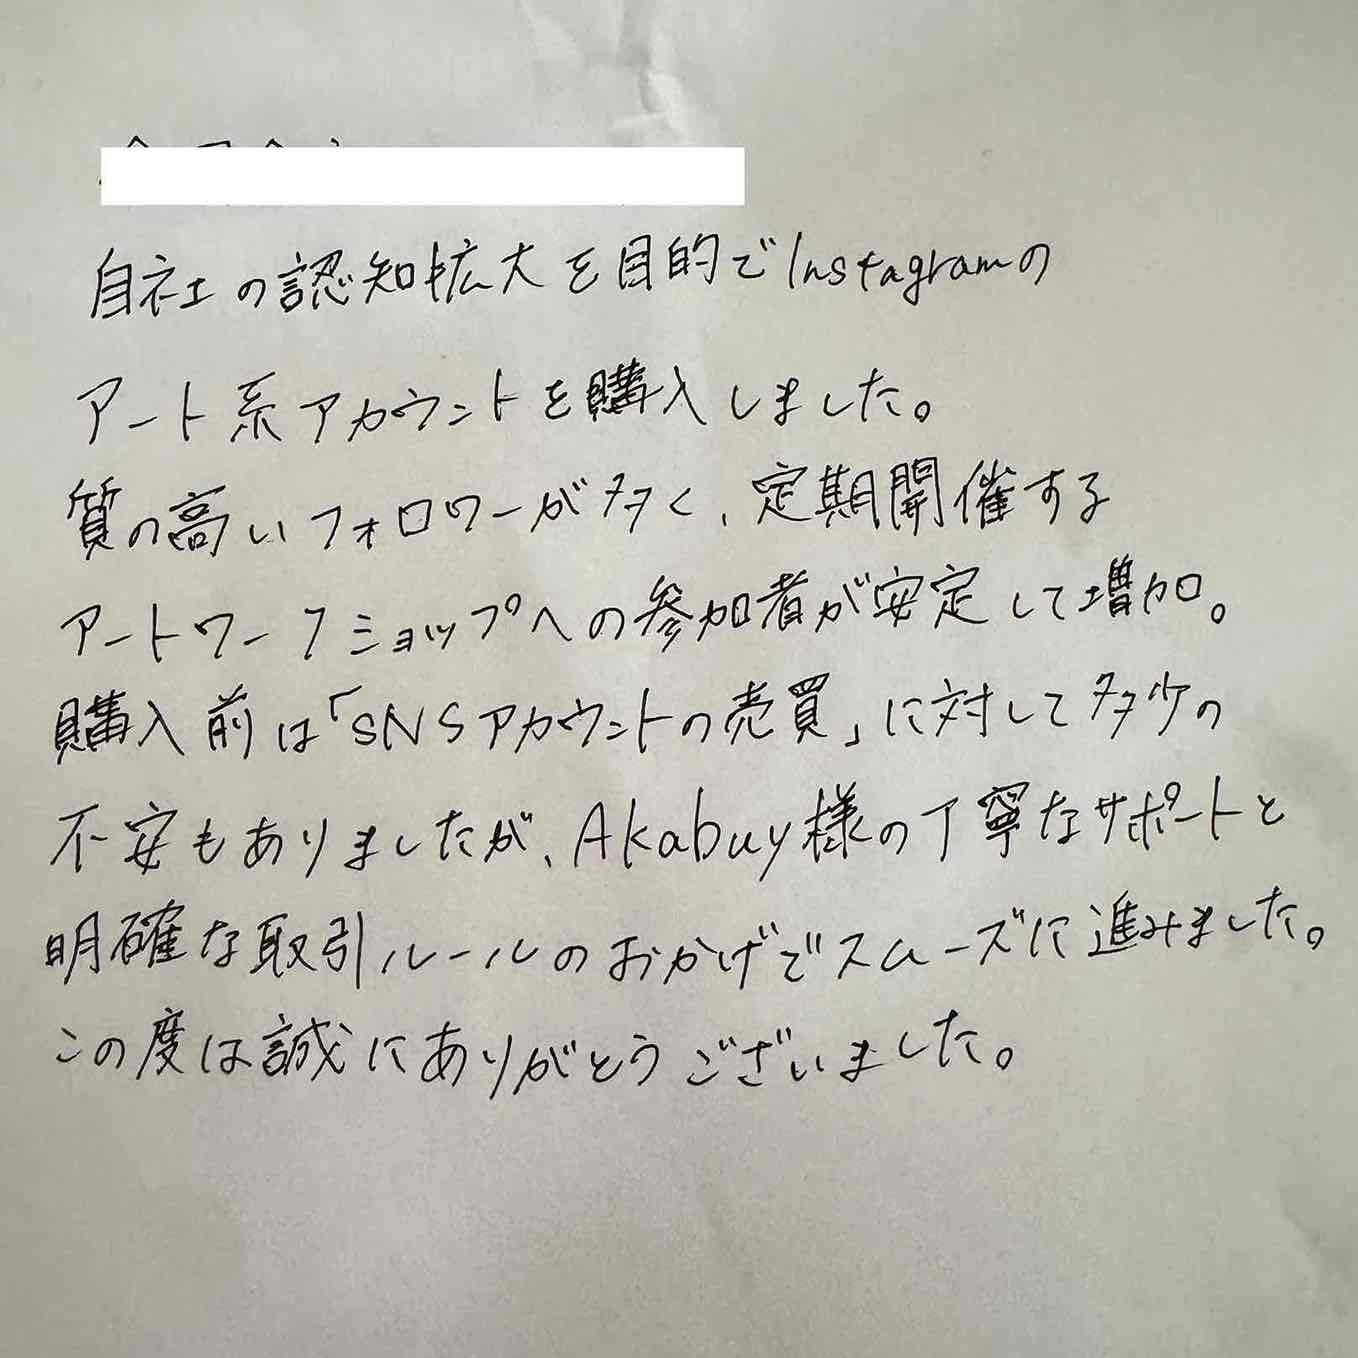 自社の認知拡大を目的でInstagramの
アート系アカウントを購入しました。
質の高いフォロワーが多く、定期開催する
アートワークショップへの参加者が安定して増加。
購入前は「SNSアカウントの売買」に対して多少の
不安もありましたが、Akabuy様の丁寧なサポートと
明確な取引ルールのおかげでスムーズに進みました。
この度は誠にありがとうございました。